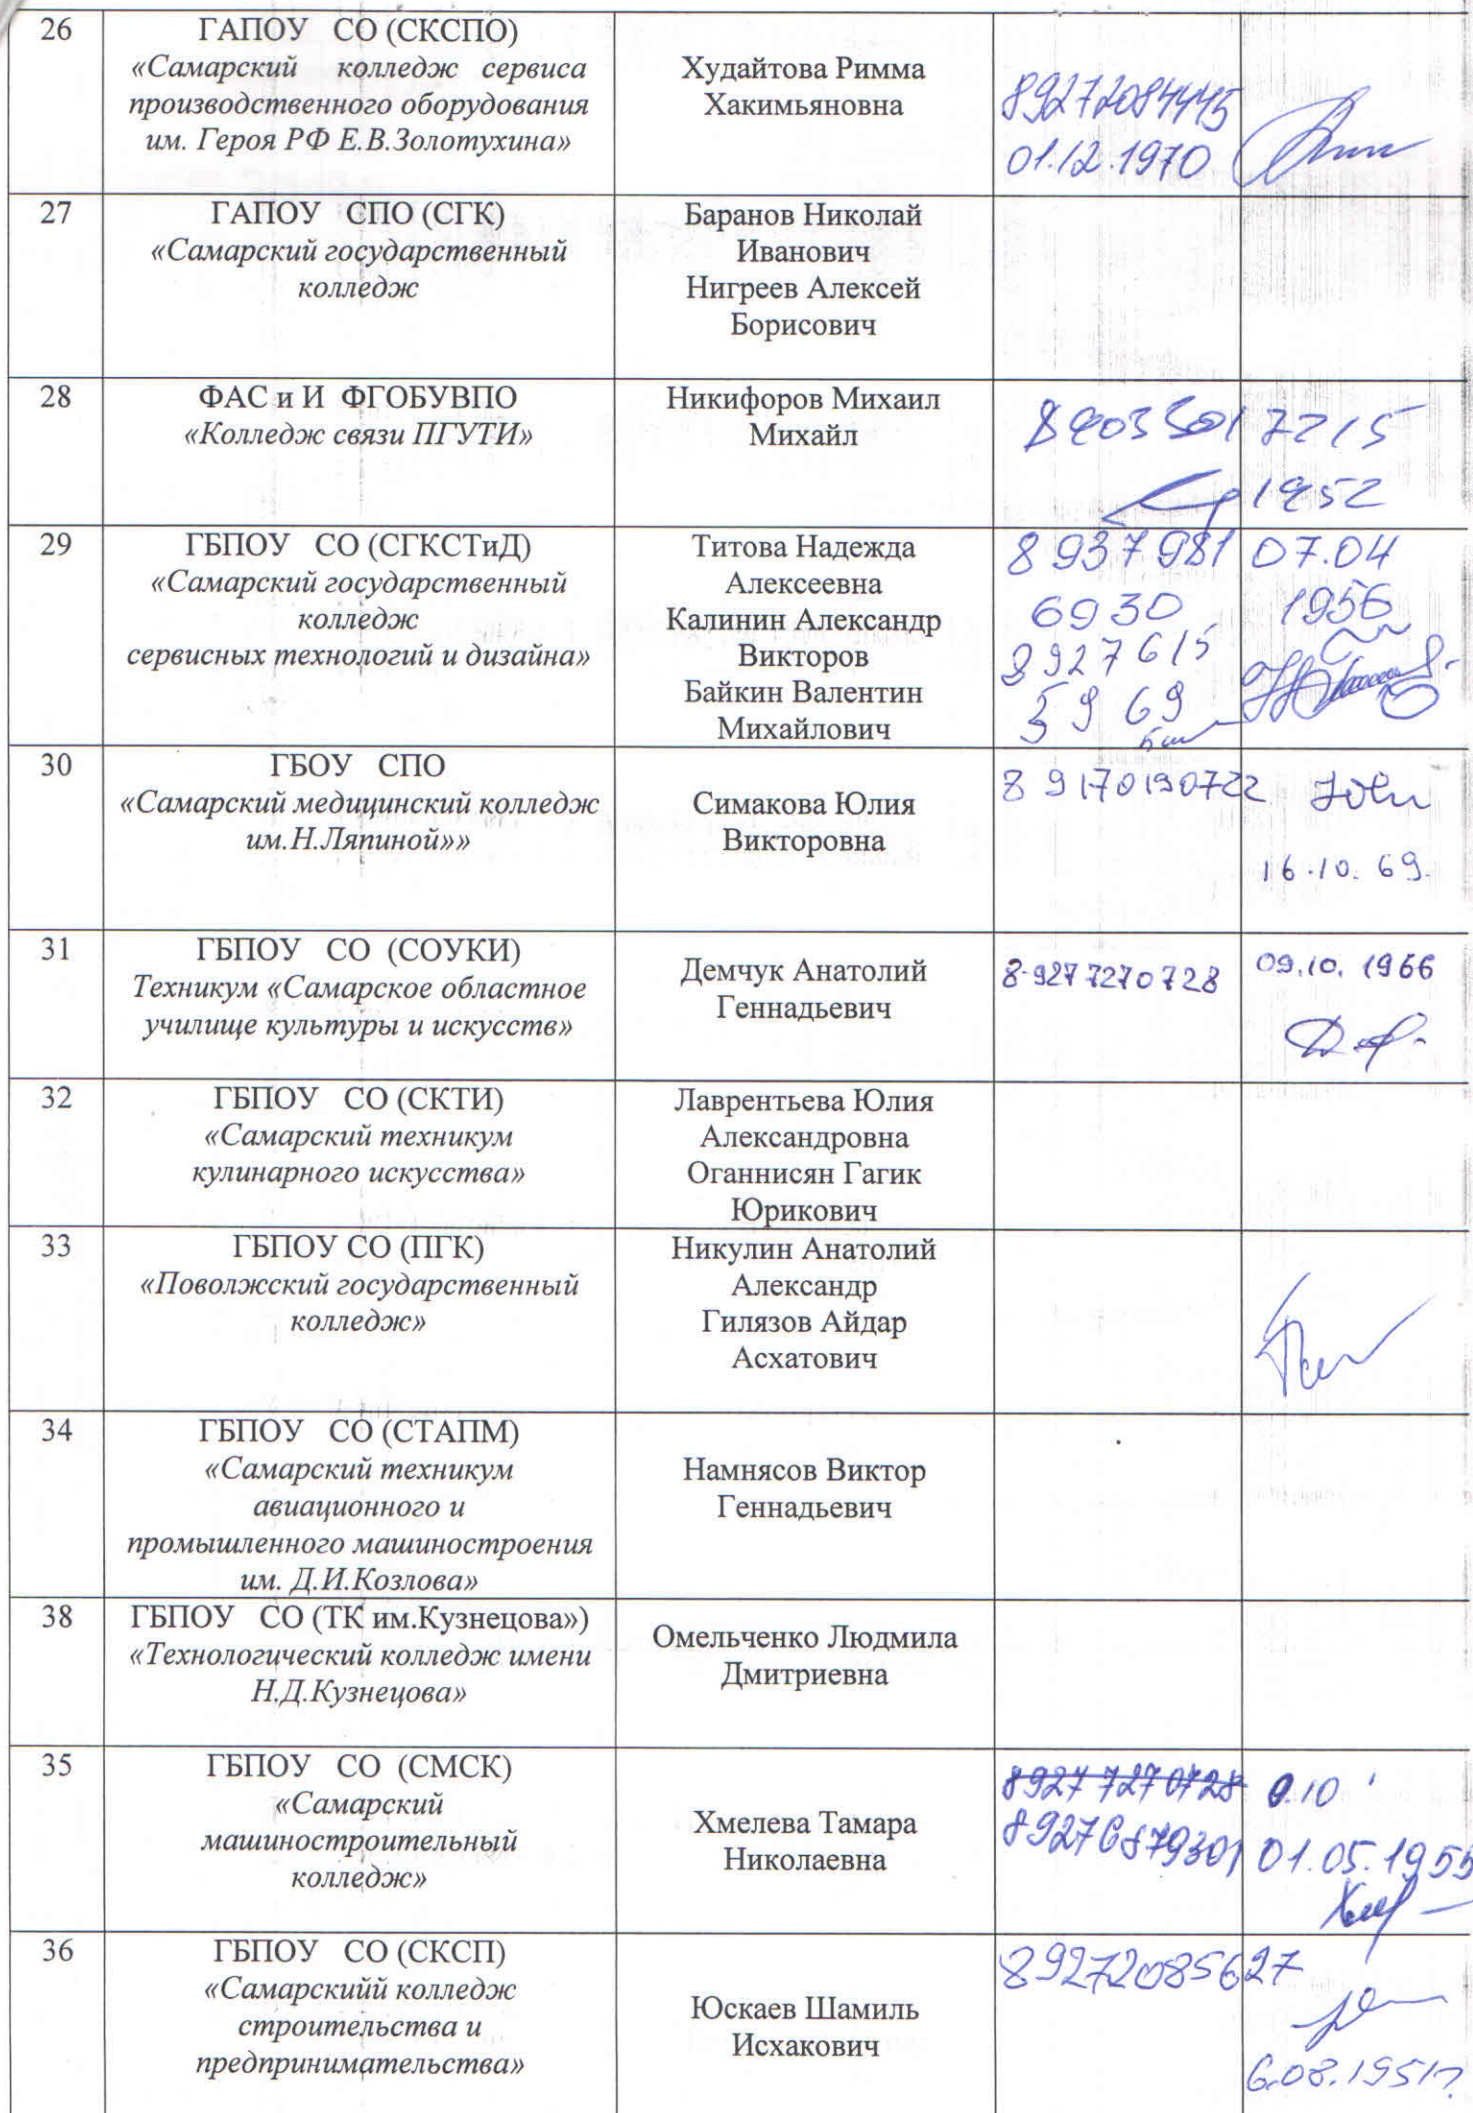 26
ГАПОУ СО (СКСПО)
«Самарский колледж сервиса
производственного оборудования
им. Героя РФ Е.В.Золотухина»
Худайтова Римма
Хакимьяновна
89272084445
01.12.1970
27
ГАПОУ СПО (СГК)
«Самарский государственный
колледж
Баранов Николай
Иванович
Нигреев Алексей
Борисович
28
ФАС и И ФГОБУВПО
«Колледж связи ПГУТИ»
Никифоров Михаил
Михайл
1952
29
ГБПОУ СО (СГКСТиД)
«Самарский государственный
колледж
сервисных технологий и дизайна»
Титова Надежда
Алексеевна
Калинин Александр
Викторов
Байкин Валентин
Михайлович
8 937 981
6930
8927615
5969
07.04
1956
30
ГБОУ СПО
«Самарский медицинский колледж
им.Н.Ляпиной»»
Симакова Юлия
Викторовна
8 9170190722
16.10.69.
31
ГБПОУ СО (СОУКИ)
Техникум «Самарское областное
училище культуры и искусств»
Демчук Анатолий
Геннадьевич
8-927 7270728
09.10.1966
32
ГБПОУ СО (СКТИ)
«Самарский техникум
кулинарного искусства»
Лаврентьева Юлия
Александровна
Оганнисян Гагик
Юрикович
33
ГБПОУ СО (ПГК)
«Поволжский государственный
колледж»
Никулин Анатолий
Александр
Гилязов Айдар
Асхатович
34
ГБПОУ СО (СТАПМ)
«Самарский техникум
авиационного и
промышленного машиностроения
им. Д.И.Козлова»
Намнясов Виктор
Геннадьевич
38
ГБПОУ СО (ТК им.Кузнецова»)
«Технологический колледж имени
Н.Д.Кузнецова»
Омельченко Людмила
Дмитриевна
35
ГБПОУ СО (СМСК)
«Самарский
машиностроительный
колледж»
Хмелева Тамара
Николаевна
8927 7270728
89276879301
01.05.1955
36
ГБПОУ СО (СКСП)
«Самарскийй колледж
строительства и
предпринимательства»
Юскаев Шамиль
Исхакович
89272085627
6.08.1951г.